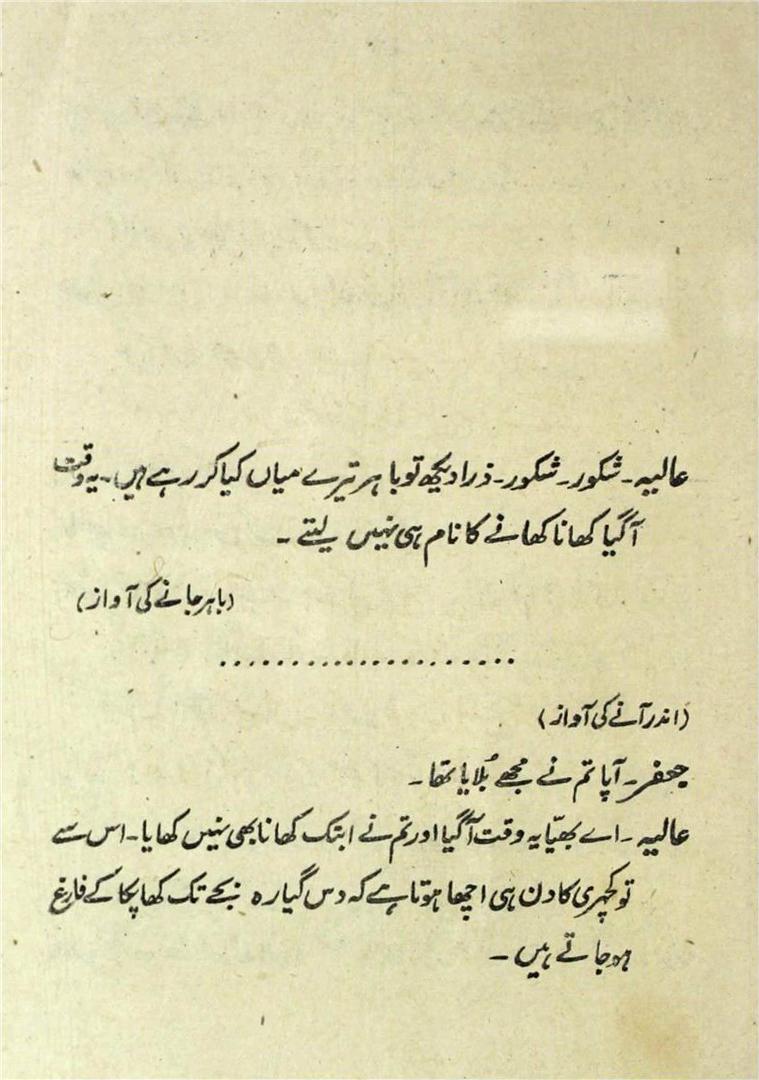 عالیہ۔ شکور۔ شکور۔ ذرا دیکھ تو باہر تیرے میاں کیا کر رہے ہیں۔ یہ وقت
آگیا کھانا کھانے کا نام ہی نہیں لیتے ۔
(باہر جانے کی آواز)
.....................
(اندر آنے کی آواز)
جعفر۔ آپا تم نے مجھے بُلایا تھا۔
عالیہ ۔ اے بھیّا یہ وقت آگیا اور تم نے ابتک کھانا بھی نہیں کھایا۔ اس سے
تو کچہری کا دن ہی اچھا ہوتا ہے کہ دس گیارہ بجے تک کھا پکا کے فارغ
ہو جاتے ہیں ۔